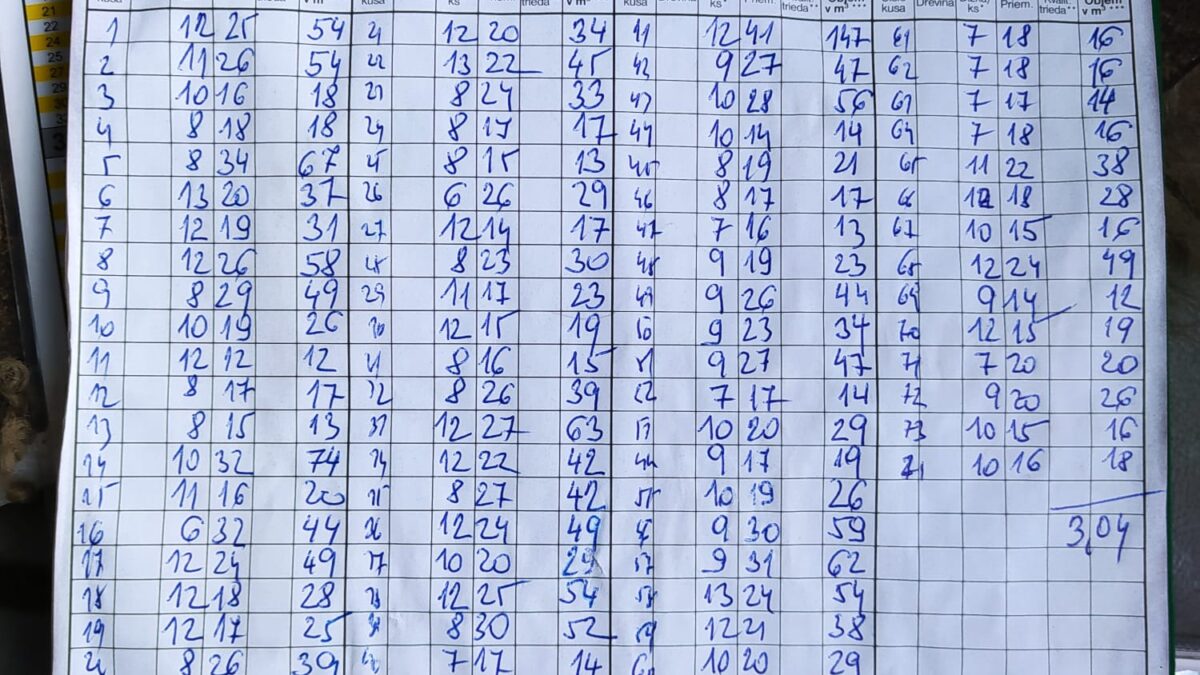 kusa ks Priem. trieda v m³ kusa Drevina ks* Priem. trieda** v m³*** kusa Drevina ks* Priem. trieda** v m³***
1 12 25 54 21 12 20 34 41 12 41 147 61 7 18 16
2 11 26 54 22 13 22 45 42 9 27 47 62 7 18 16
3 10 16 18 23 8 24 33 43 10 28 56 63 7 17 14
4 8 18 18 24 8 17 17 44 10 14 14 64 7 18 16
5 8 34 67 25 8 15 13 45 8 19 21 65 11 22 38
6 13 20 37 26 6 26 29 46 8 17 17 66 12 18 28
7 12 19 31 27 12 14 17 47 7 16 13 67 10 15 16
8 12 26 58 28 8 23 30 48 9 19 23 68 12 24 49
9 8 29 49 29 11 17 23 49 9 26 44 69 9 14 12
10 10 19 26 30 12 15 19 50 9 23 34 70 12 15 19
11 12 12 12 31 8 16 15 51 9 27 47 71 7 20 20
12 8 17 17 32 8 26 39 52 7 17 14 72 9 20 26
13 8 15 13 33 12 27 63 53 10 20 29 73 10 15 16
14 10 32 74 34 12 22 42 9 17 19 74 10 16 18
15 11 16 20 35 8 27 42 55 10 19 26
16 6 32 44 36 12 24 49 56 9 30 59 3,04
17 12 24 49 37 10 20 29 57 9 31 62
18 12 18 28 38 12 25 54 58 13 24 54
19 12 17 25 39 8 30 52 59 12 21 38
20 8 26 39 40 7 17 14 60 10 20 29